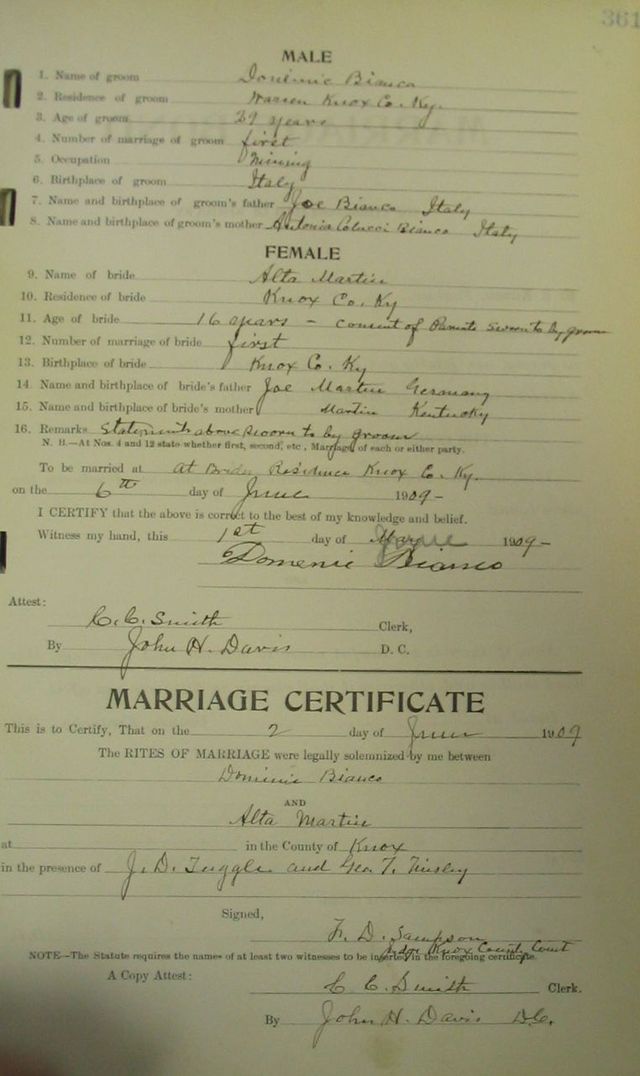 361
MALE
1. Name of groom Dominic Bianco
2. Residence of groom Warren Knox Co. Ky.
3. Age of groom 29 years
4. Number of marriage of groom first
5. Occupation Mining
6. Birthplace of groom Italy
7. Name and birthplace of groom's father Joe Bianco Italy
8. Name and birthplace of groom's mother Antonia Colucci Bianco Italy
FEMALE
9. Name of bride Alta Martin
10. Residence of bride Knox Co. Ky
11. Age of bride 16 years - consent of Parents sworn to by groom
12. Number of marriage of bride first
13. Birthplace of bride Knox Co. Ky
14. Name and birthplace of bride's father Joe Martin Germany
15. Name and birthplace of bride's mother Martin Kentucky
16. Remarks Statements above sworn to by groom
N. B.—At Nos. 4 and 12 state whether first, second, etc., Marriage of each or either party.
To be married at At Brides Residence Knox Co. Ky.
on the 6th day of June 1909-
I CERTIFY that the above is correct to the best of my knowledge and belief.
Witness my hand, this 1st day of June 1909-
Domenic Bianco
Attest:
C. C. Smith Clerk,
By John H. Davis D. C.
MARRIAGE CERTIFICATE
This is to Certify, That on the 2 day of June 1909
The RITES OF MARRIAGE were legally solemnized by me between
Dominic Bianco
AND
Alta Martin
at in the County of Knox
in the presence of J. D. Tuggle and Geo. T. Tinsley
Signed,
F. D. Sampson
Judge Knox County Court
NOTE—The Statute requires the names of at least two witnesses to be inserted in the foregoing certificate.
A Copy Attest:
C C Smith Clerk.
By John H. Davis D.C.